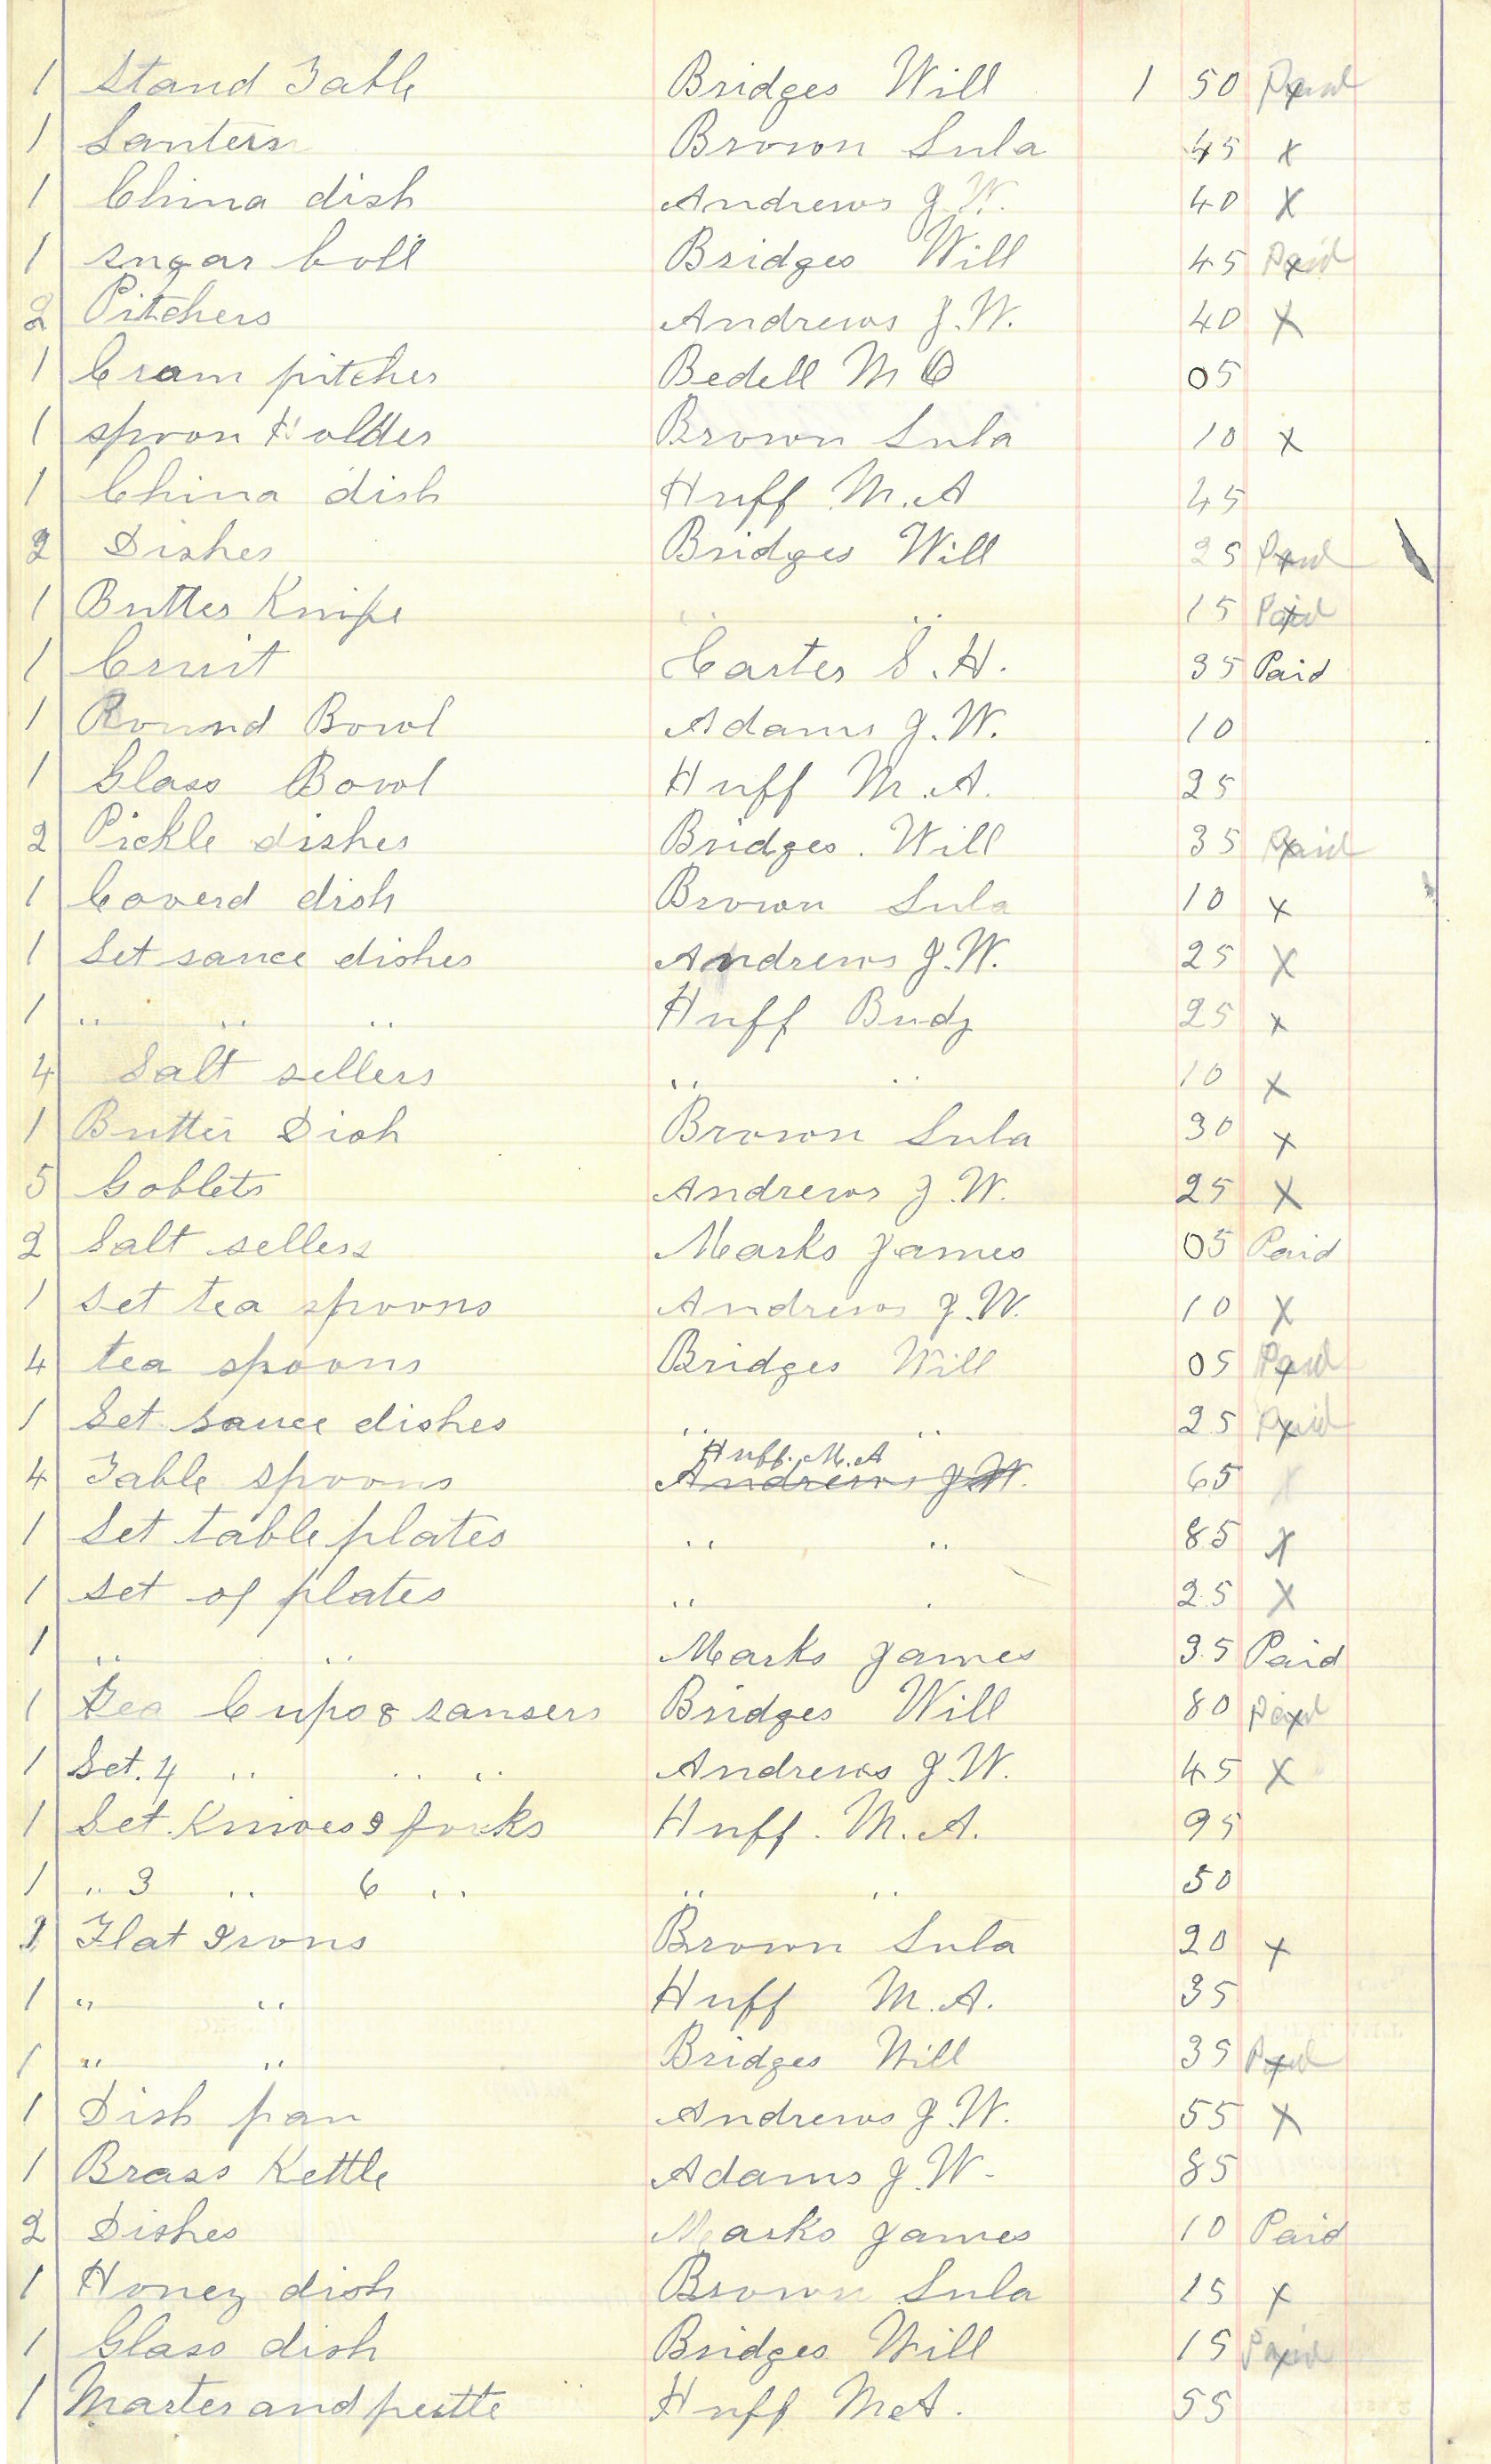 1 Stand Table Bridges Will 1 50 Paid x
1 Lantern Brown Lula 45 x
1 China dish Andrews J.W. 40 x
1 sugar boll Bridges Will 45 Paid x
2 Pitchers Andrews J.W. 40 x
1 Cram pitcher Bedell M O 05
1 spoon Holder Brown Lula 10 x
1 China dish Huff M.A 45
2 Dishes Bridges Will 25 Paid x
1 Butter Knife " " 15 Paid x
1 Cruit Carter S.H. 35 Paid
1 Round Bowl Adams J.W. 10
1 Glass Bowl Huff M.A. 25
2 Pickle dishes Bridges. Will 35 Paid x
1 Coverd dish Brown Lula 10 x
1 Set sauce dishes Andrews J.W. 25 x
1 " " " Huff Budy 25 x
4 Salt sellers " " 10 x
1 Butter Dish Brown Lula 30 x
5 Goblets Andrews J.W. 25 x
2 Salt sellers Marks James 05 Paid
1 Set tea spoons Andrews J.W. 10 x
4 tea spoons Bridges Will 05 Paid x
1 Set sauce dishes " " 25 Paid x
Huff. M.A
4 Table Spoons Andrews J.W. 65 x
1 Set table plates " " 85 x
1 Set of plates " " 25 x
1 " " Marks James 35 Paid
1 Tea Cups & sausers Bridges Will 80 Paid x
1 Set. 4 " " " Andrews J.W. 45 x
1 Set Knives & forks Huff. M.A. 95
1 " 3 " 6 " " " 50
1 Flat Irons Brown Lula 20 x
1 " " Huff M.A. 35
1 " " Bridges Will 35 Paid x
1 Dish pan Andrews J.W. 55 x
1 Brass Kettle Adams J.W. 85
2 Dishes Marks James 10 Paid
1 Honey dish Brown Lula 15 x
1 Glass dish Bridges Will 15 Paid x
1 Marter and pestte Huff M.A. 55